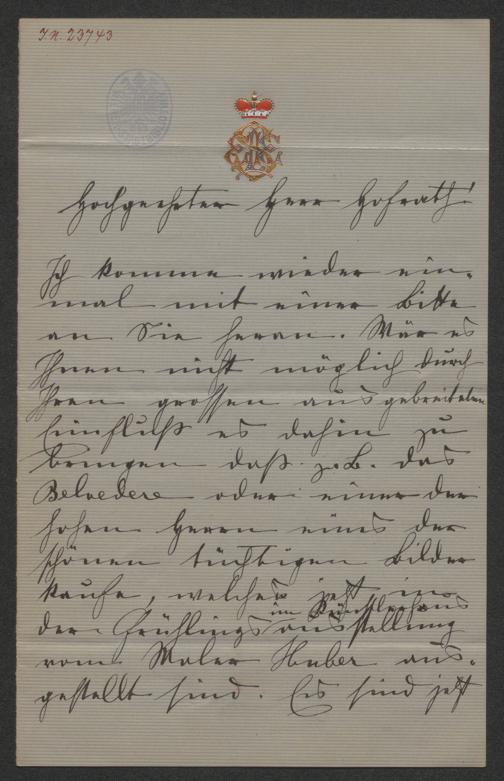 I.N. 23743
Hochgeehrter Herr Hofrath!
Ich komme wieder ein-
mal mit einer Bitte
an Sie heran. Wär es
Ihnen nicht möglich durch
Ihren grossen ausgebreiteten
Einfluß es dahin zu
bringen daß z.B. das
Belvedere oder einer der
hohen Herrn eines der
schönen tüchtigen Bilder
kaufe, welches jetzt in
im Künstlerhaus
der Frühlingsausstellung
vom Maler Huber aus-
gestellt sind. Es sind jetzt